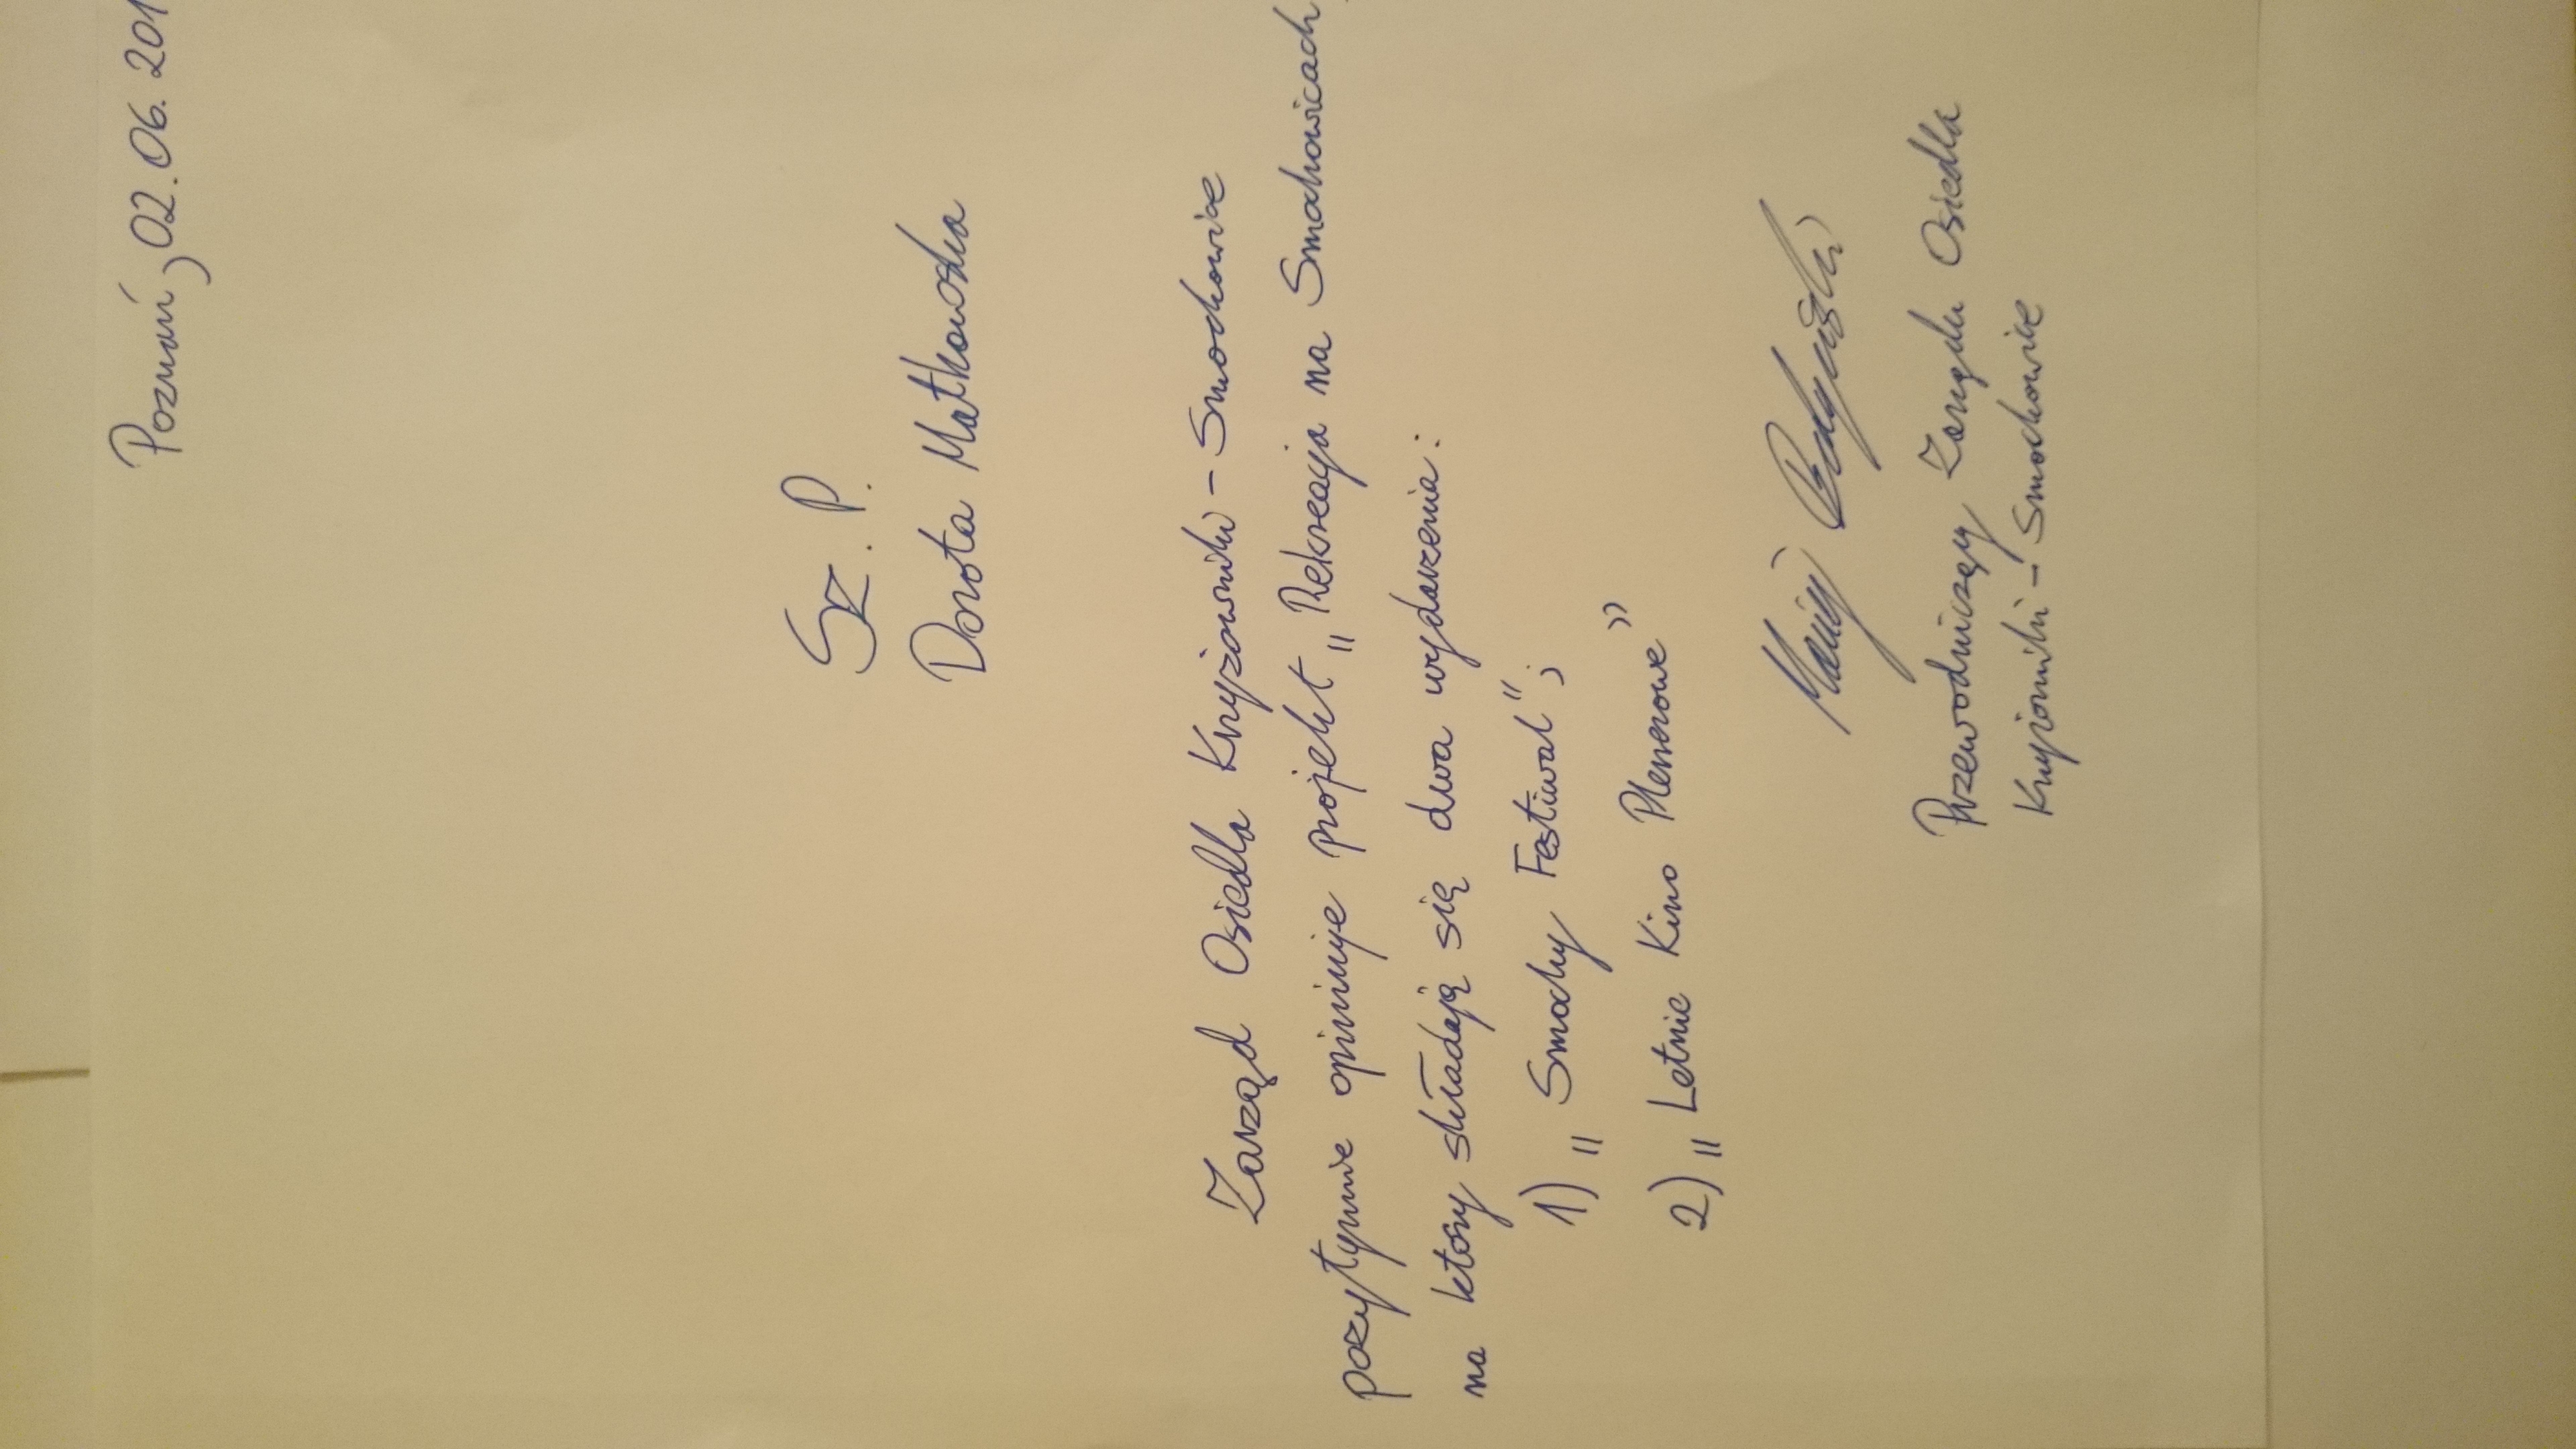 Poznań, 02.06.201
Sz. P.
Dorota Matkowska
Zarząd Osiedla Krzyżowniki - Smochowice
pozytywnie opiniuje projekt „Rekreacja na Smochowicach”,
na który składają się dwa wydarzenia:
1) „Smochy Festiwal”;
2) „Letnie Kino Plenerowe”
Maciej
Przewodniczący Zarządu Osiedla
Krzyżowniki - Smochowice